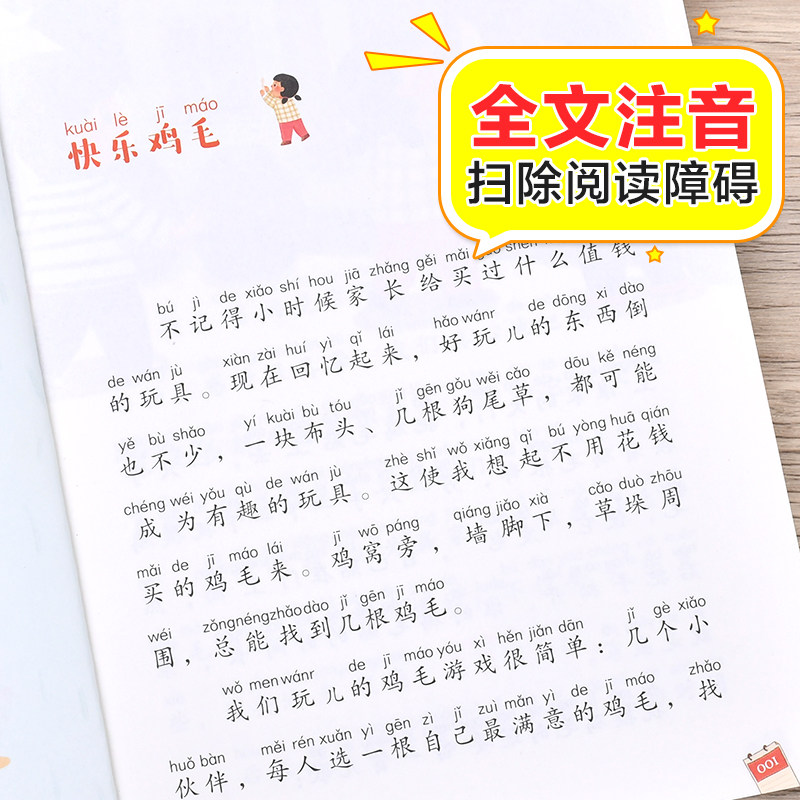 kuài lè jī máo
快乐鸡毛
全文注音
扫除阅读障碍
bú jì de xiǎo shí hou jiā zhǎng gěi mǎi
不记得小时候家长给买过什么值钱
de wán jù xiàn zài huí yì qǐ lái hǎo wánr de dōng xi dào
的玩具。现在回忆起来，好玩儿的东西倒
yě bù shǎo yí kuài bù tóu jǐ gēn gǒu wěi cǎo dōu kě néng
也不少，一块布头、几根狗尾草，都可能
chéng wéi yǒu qù de wán jù zhè shǐ wǒ xiǎng qǐ bú yòng huā qián
成为有趣的玩具。这使我想起不用花钱
mǎi de jī máo lái jī wō páng qiáng jiǎo xià cǎo duò zhōu
买的鸡毛来。鸡窝旁，墙脚下，草垛周
wéi zǒngnéngzhǎodào jǐ gēn jī máo
围，总能找到几根鸡毛。
wǒ menwánr de jī máoyóu xì hěn jiǎn dān jǐ gè xiǎo
我们玩儿的鸡毛游戏很简单：几个小
huǒ bàn měi rén xuǎn yì gēn zì jǐ zuì mǎn yì de jī máo zhǎo
伙伴，每人选一根自己最满意的鸡毛，找
001